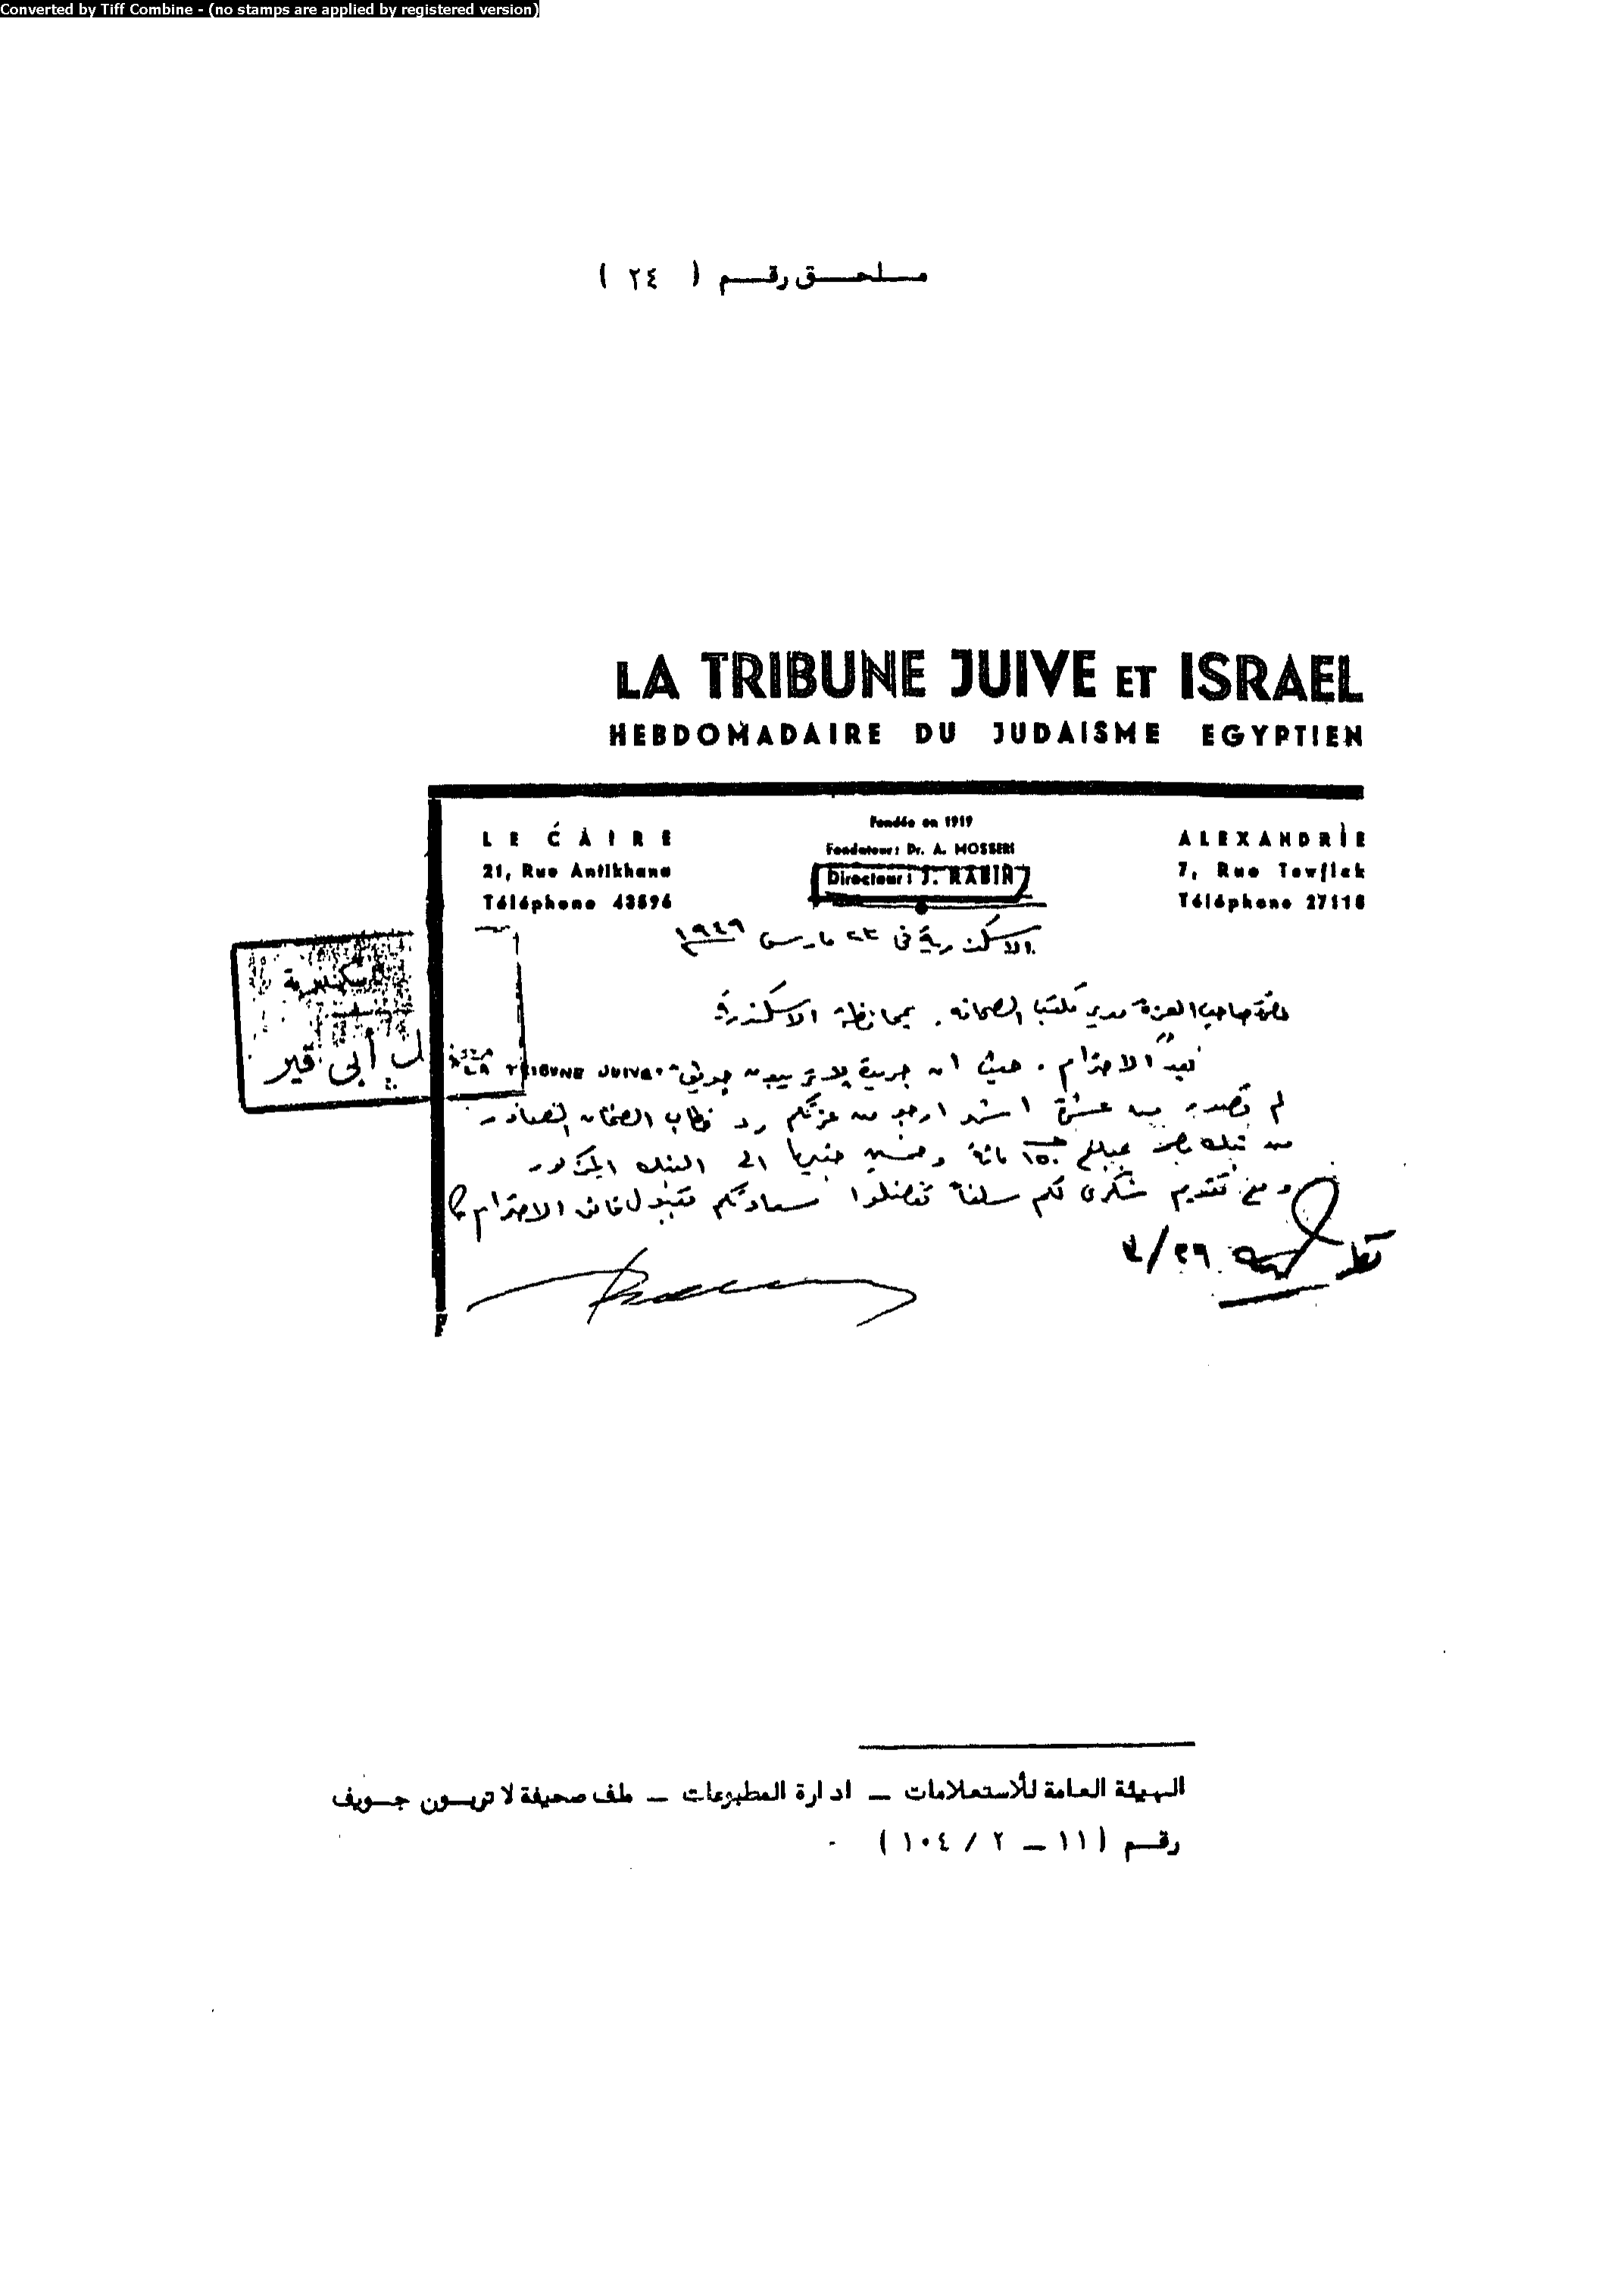 Converted by Tiff Combine - (no stamps are applied by registered version)
ملحق رقم ( ٢٤ )
LA TRIBUNE JUIVE ET ISRAEL
HEBDOMADAIRE DU JUDAISME EGYPTIEN
LE CAIRE
21, Rue Antikhana
Téléphone 43596
Fondée en 1919
Fondateur: Dr. A. MOSSERI
Directeur: J. RABIN
ALEXANDRIE
7, Rue Tewfick
Téléphone 27118
الاسكندرية فى ٢٣ مارس ١٩٤٩
حضرة صاحب العزة مدير مكتب الصحافة بمحافظة الاسكندرية
بعد الاحترام . حيث ان جريدة لاتريبون جويف "LA TRIBUNE JUIVE"
لم تصدر من عشرة اشهر ارجو من عزتكم رد خطاب الضمان الصادر
من بنك بمبلغ ١٥٠ مائة وخمسين جنيها الى البنك المذكور
ومع تقديم شكرى لكم سلفا تفضلوا سعادتكم بقبول فائق الاحترام
٣/٢٦
أبى قير
الهيئة العامة للأستعلامات ــ ادارة المطبوعات ــ ملف صحيفة لا تربسون جويف
رقم (١١ ــ ٢ / ١٠٤) ٠